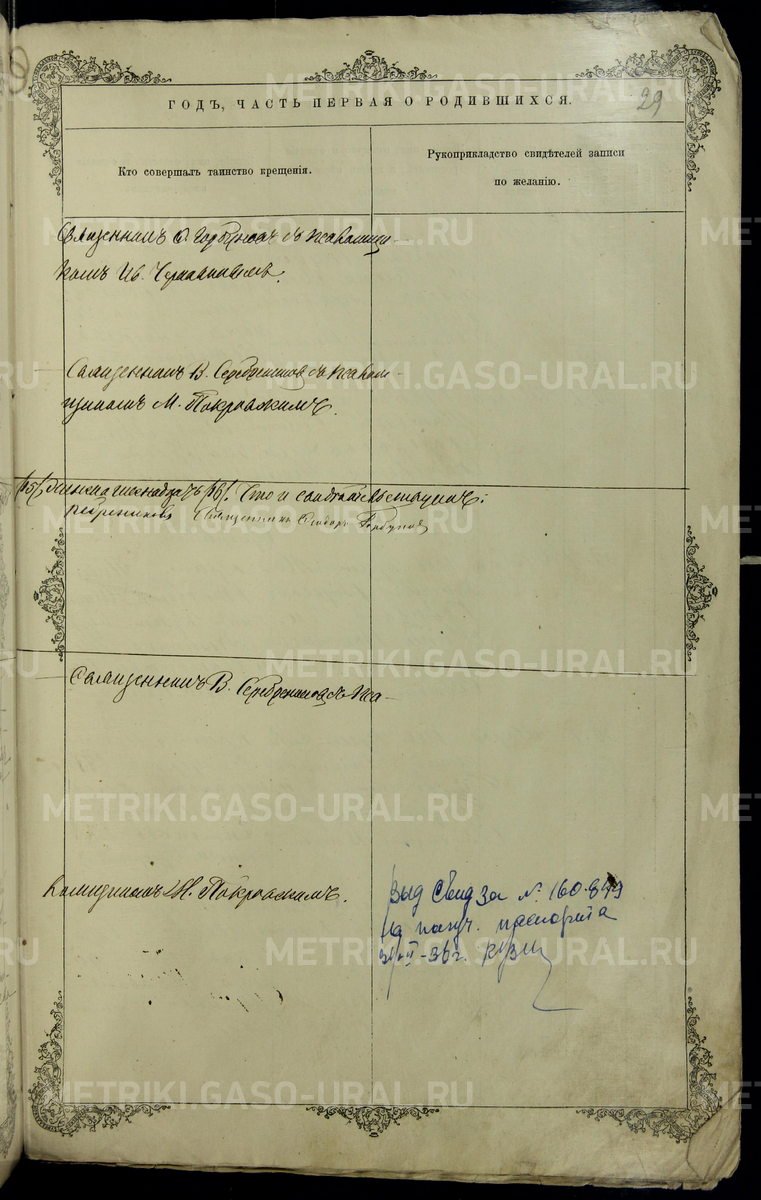 29
ГОДЪ, ЧАСТЬ ПЕРВАЯ О РОДИВШИХСЯ.
Кто совершалъ таинство крещенія.
Рукоприкладство свидѣтелей записи
по желанію.
Священникъ Ѳ. Горбуновъ съ псаломщи-
комъ Ив.
Священникъ В. Серебренниковъ съ псалом-
щикомъ М. Покровскимъ.
Что и свидѣтельствуемъ:
Священникъ Ѳеодоръ Горбуновъ
Священникъ В. Серебренниковъ съ пса-
ломщикомъ М. Покровскимъ.
Выд Свид за №
на получ. паспорта
METRIKI.GASO-URAL.RU